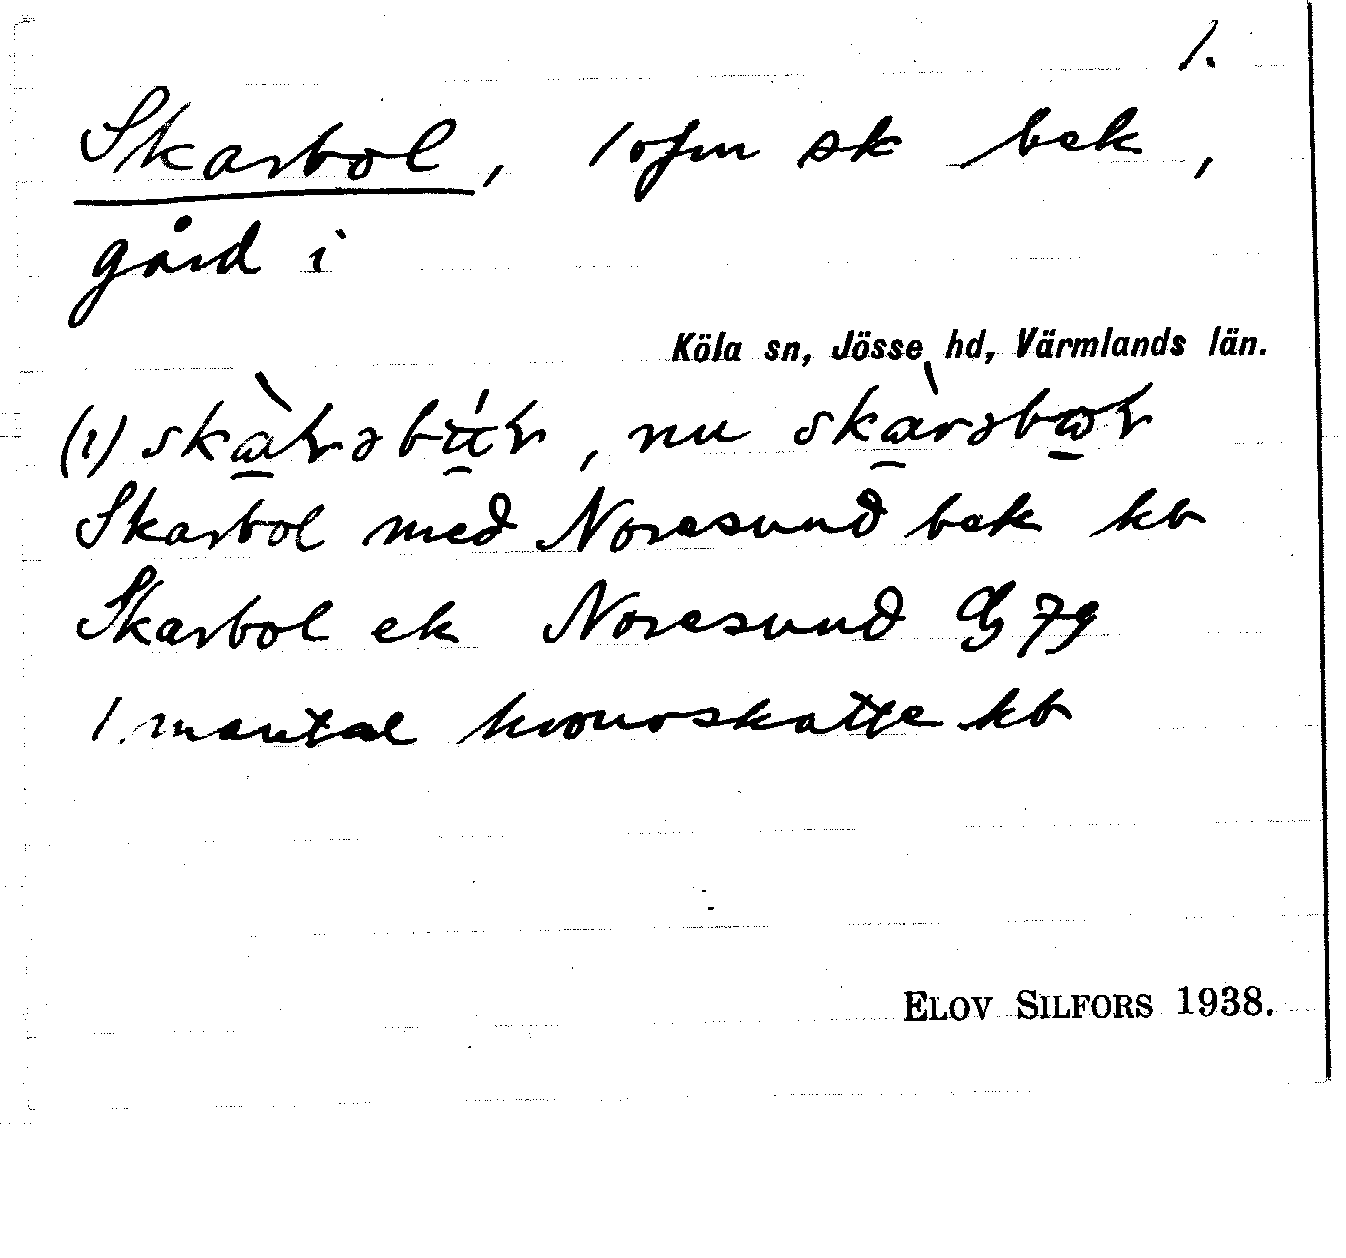 1.
Skarbol, 1 ofm sk bek,
gård i
Köla sn, Jösse hd, Värmlands län.
(1) , nu
Skarbol med Noresund bek kb
Skarbol ek Noresund G 79
1 mantal kronoskatte kb
ELOV SILFORS 1938.